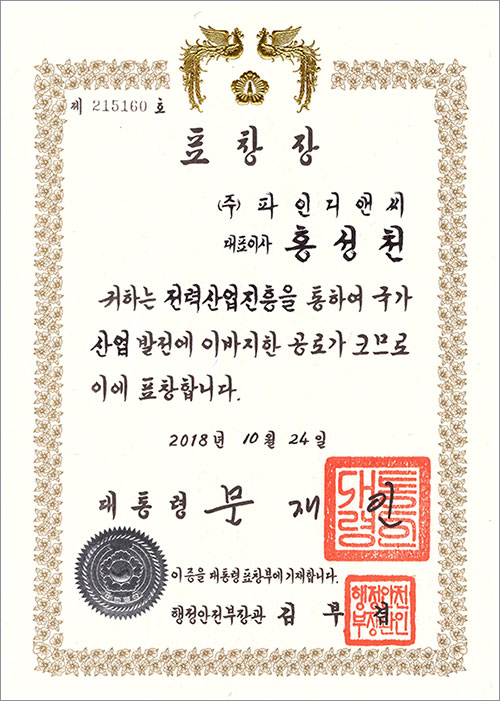 제 215160 호
표 창 장
(주) 파 인 디 앤 씨
대표이사 홍 성 천
귀하는 전력산업진흥을 통하여 국가
산업 발전에 이바지한 공로가 크므로
이에 표창합니다.
2018년 10월 24일
대 통 령 문 재 인
대통령인
이 증을 대통령표창부에 기재합니다.
행정안전부장관 김 부 겸
행정안전부장관인